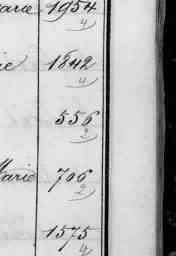 1954
4
1842
4
556
2
Marie 706
2
1575
4